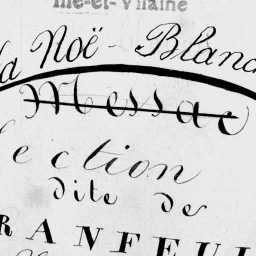 Ille-et-Vilaine
la Noë-Blanc
Messac
ection
dite de
RANFEUI